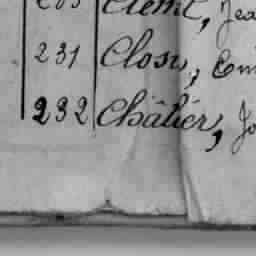 Clemt, Jea
231 Closu, Em
232 Châlier, Jo